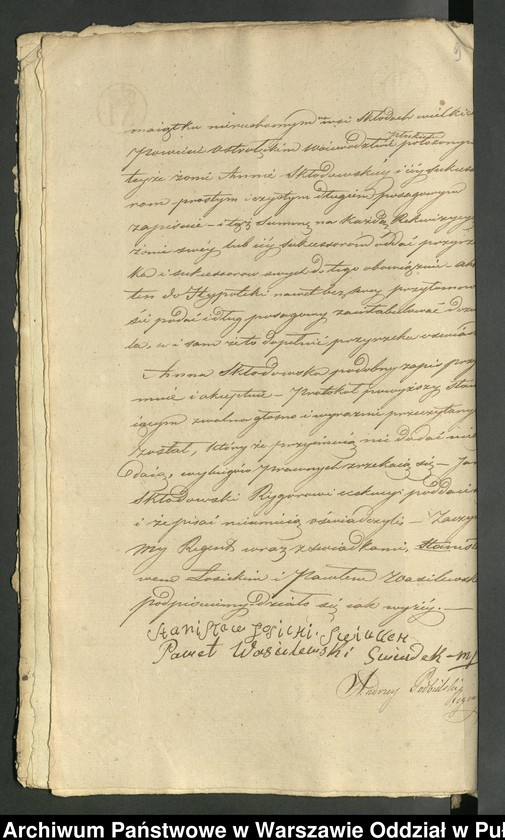 maiątku nieruchomym wsi Skłodach wielkich
Powiecie Ostrołęckim Woiewodztwie
płock:
położonym
teyże żonie Annie Skłodowskiey i iey sukcesso
rom prostym i czystym długiem posagowym
zapisuie – i tęż summę na każdą rekwizycyą
żonie swey lub iey sukcessorów oddać przyrze
ka i sukcessorow swych do tego obowiązuie – akt
ten do Hypoteki nawet bez swey przytomno
ści podać i dług posagowy zaintabulować dozwa
la, a i sam że to dopełnić przyrzeka
Anna Skłodowska podobny zapis przy
muie i akceptuie – Protokół powyższy Staw
iącym zwolna głośno i wyraźnie przeczytany
został, który że przyimuią nic dodać nie
daią, wybiegow prawnych zrzekaią się – Jan
Skłodowski Rygorowi exekucyi poddaie
i że pisać nieumieią oświadczyli – Zaczym
My Regent wraz z świadkami, Stanisła
wem Łosickim i Pawłem Wasilewskim
podpisuiemy Działo się iak wyżey. —
Stanisław Łosicki Swiadek
Paweł Wasilewski Swiadek – mp
Andrzey Podbielski
Regent
9
Archiwum Państwowe w Warszawie Oddział w Puł